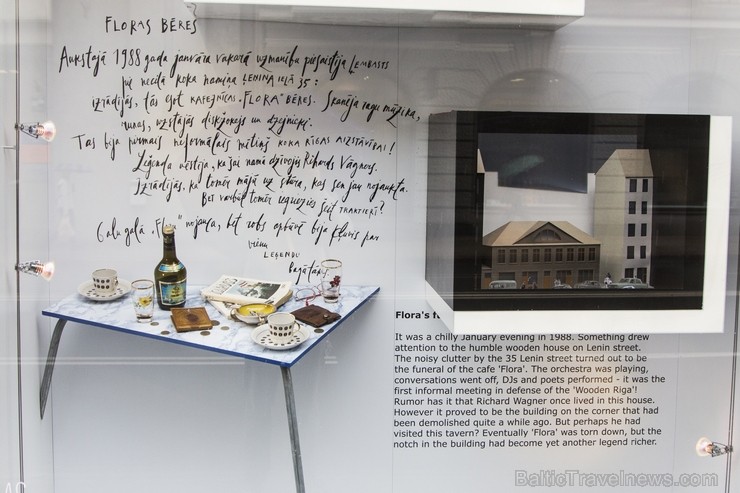 FLORAS BĒRES
Aukstajā 1988 gada janvāra vakarā uzmanību piesaistīja ĻEMBASTS
pie necilā koka namiņa ĻEŅINA IELĀ 35:
izrādījās, tās esot KAFEJNĪCAS "FLORA" BĒRES. Skanēja ragu mūzika,
runas, uzstājās diskžokejs un dzejnieki.
Tas bija pirmais neformālais mītiņš KOKA RĪGAS AIZSTĀVĪBAI!
Leģenda vēstīja, ka šai namā dzīvojis Rihards Vāgners.
Izrādījās, ka tomēr mājā uz stūra, kas sen jau nojaukta.
Bet varbūt tomēr iegriezies šeit TRAKTIERĪ?
Galu galā "Flo " nojauca, bet robs apbūvē bija kļuvis par
vienu
LEĢENDU
bagātāks
Flora's f
It was a chilly January evening in 1988. Something drew
attention to the humble wooden house on Lenin street.
The noisy clutter by the 35 Lenin street turned out to be
the funeral of the cafe 'Flora'. The orchestra was playing,
conversations went off, DJs and poets performed - it was the
first informal meeting in defense of the 'Wooden Riga'!
Rumor has it that Richard Wagner once lived in this house.
However it proved to be the building on the corner that had
been demolished quite a while ago. But perhaps he had
visited this tavern? Eventually 'Flora' was torn down, but the
notch in the building had become yet another legend richer.
BalticTravelnews.com